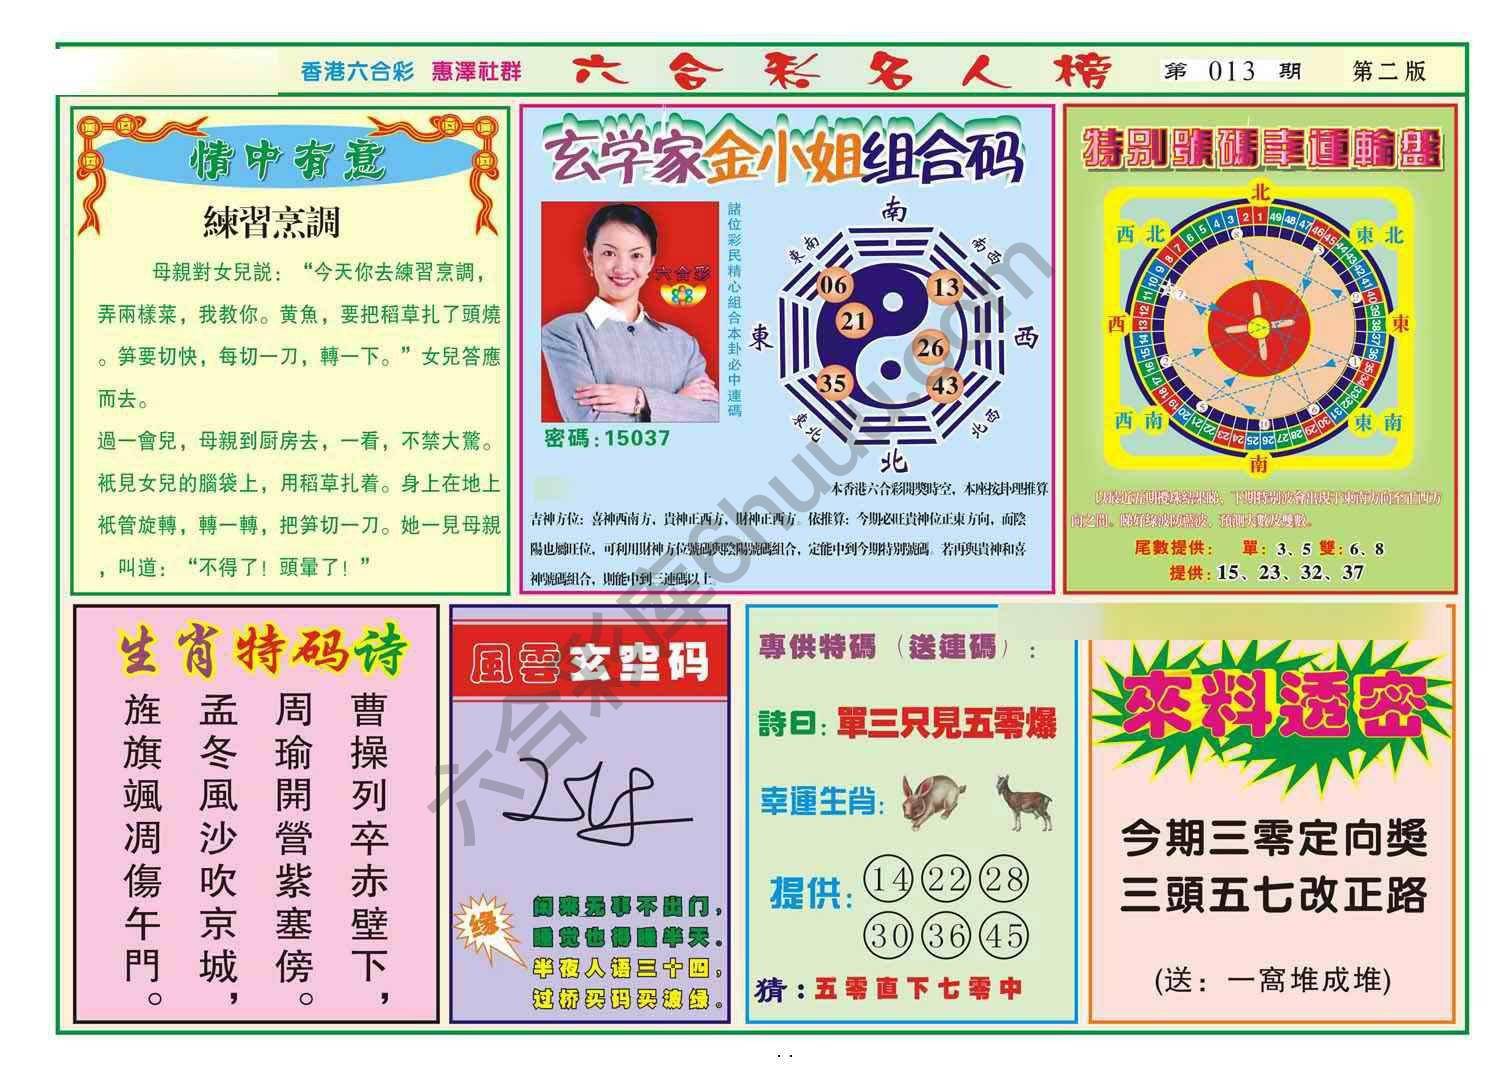 香港六合彩 惠澤社群 六合彩名人榜 第 013 期 第二版
情中有意
練習烹調
母親對女兒説：“今天你去練習烹調，
弄兩樣菜，我教你。黄魚，要把稻草扎了頭燒
。笋要切快，每切一刀，轉一下。”女兒答應
而去。
過一會兒，母親到厨房去，一看，不禁大驚。
衹見女兒的腦袋上，用稻草扎着。身上在地上
衹管旋轉，轉一轉，把笋切一刀。她一見母親
，叫道：“不得了！頭暈了！”
玄学家金小姐组合码
六合彩
密碼：15037
諸位彩民精心組合本卦必中連碼
南
東南
南西
東
西
東北
北西
北
06
13
21
26
35
43
本香港六合彩開獎時空，本座按卦理推算
吉神方位：喜神西南方，貴神正西方，財神正西方。依推算：今期必旺貴神位正東方向，而陰
陽也屬旺位，可利用財神方位號碼與陰陽號碼組合，定能中到今期特别號碼。若再與貴神和喜
神號碼組合，則能中到三連碼以上。
特别號碼幸運輪盤
北
西北
東北
西
東
西南
東南
南
以最近五期攪珠結果睇，下期特别波會出現于東南方向至正西方
向之間。
尾數提供： 單：3、5 雙：6、8
提供：15、23、32、37
生肖特码诗
曹操列卒赤壁下，
周瑜開營紫塞傍。
孟冬風沙吹京城，
旌旗颯凋傷午門。
風雲玄空码
缘
闲来无事不出门，
睡觉也得睡半天。
半夜人语三十四，
过桥买码买波绿。
專供特碼（送連碼）：
詩曰：單三只見五零爆
幸運生肖：
提供：
14 22 28
30 36 45
猜：五零直下七零中
來料透密
今期三零定向獎
三頭五七改正路
(送：一窩堆成堆)
六合彩库6huuu.com